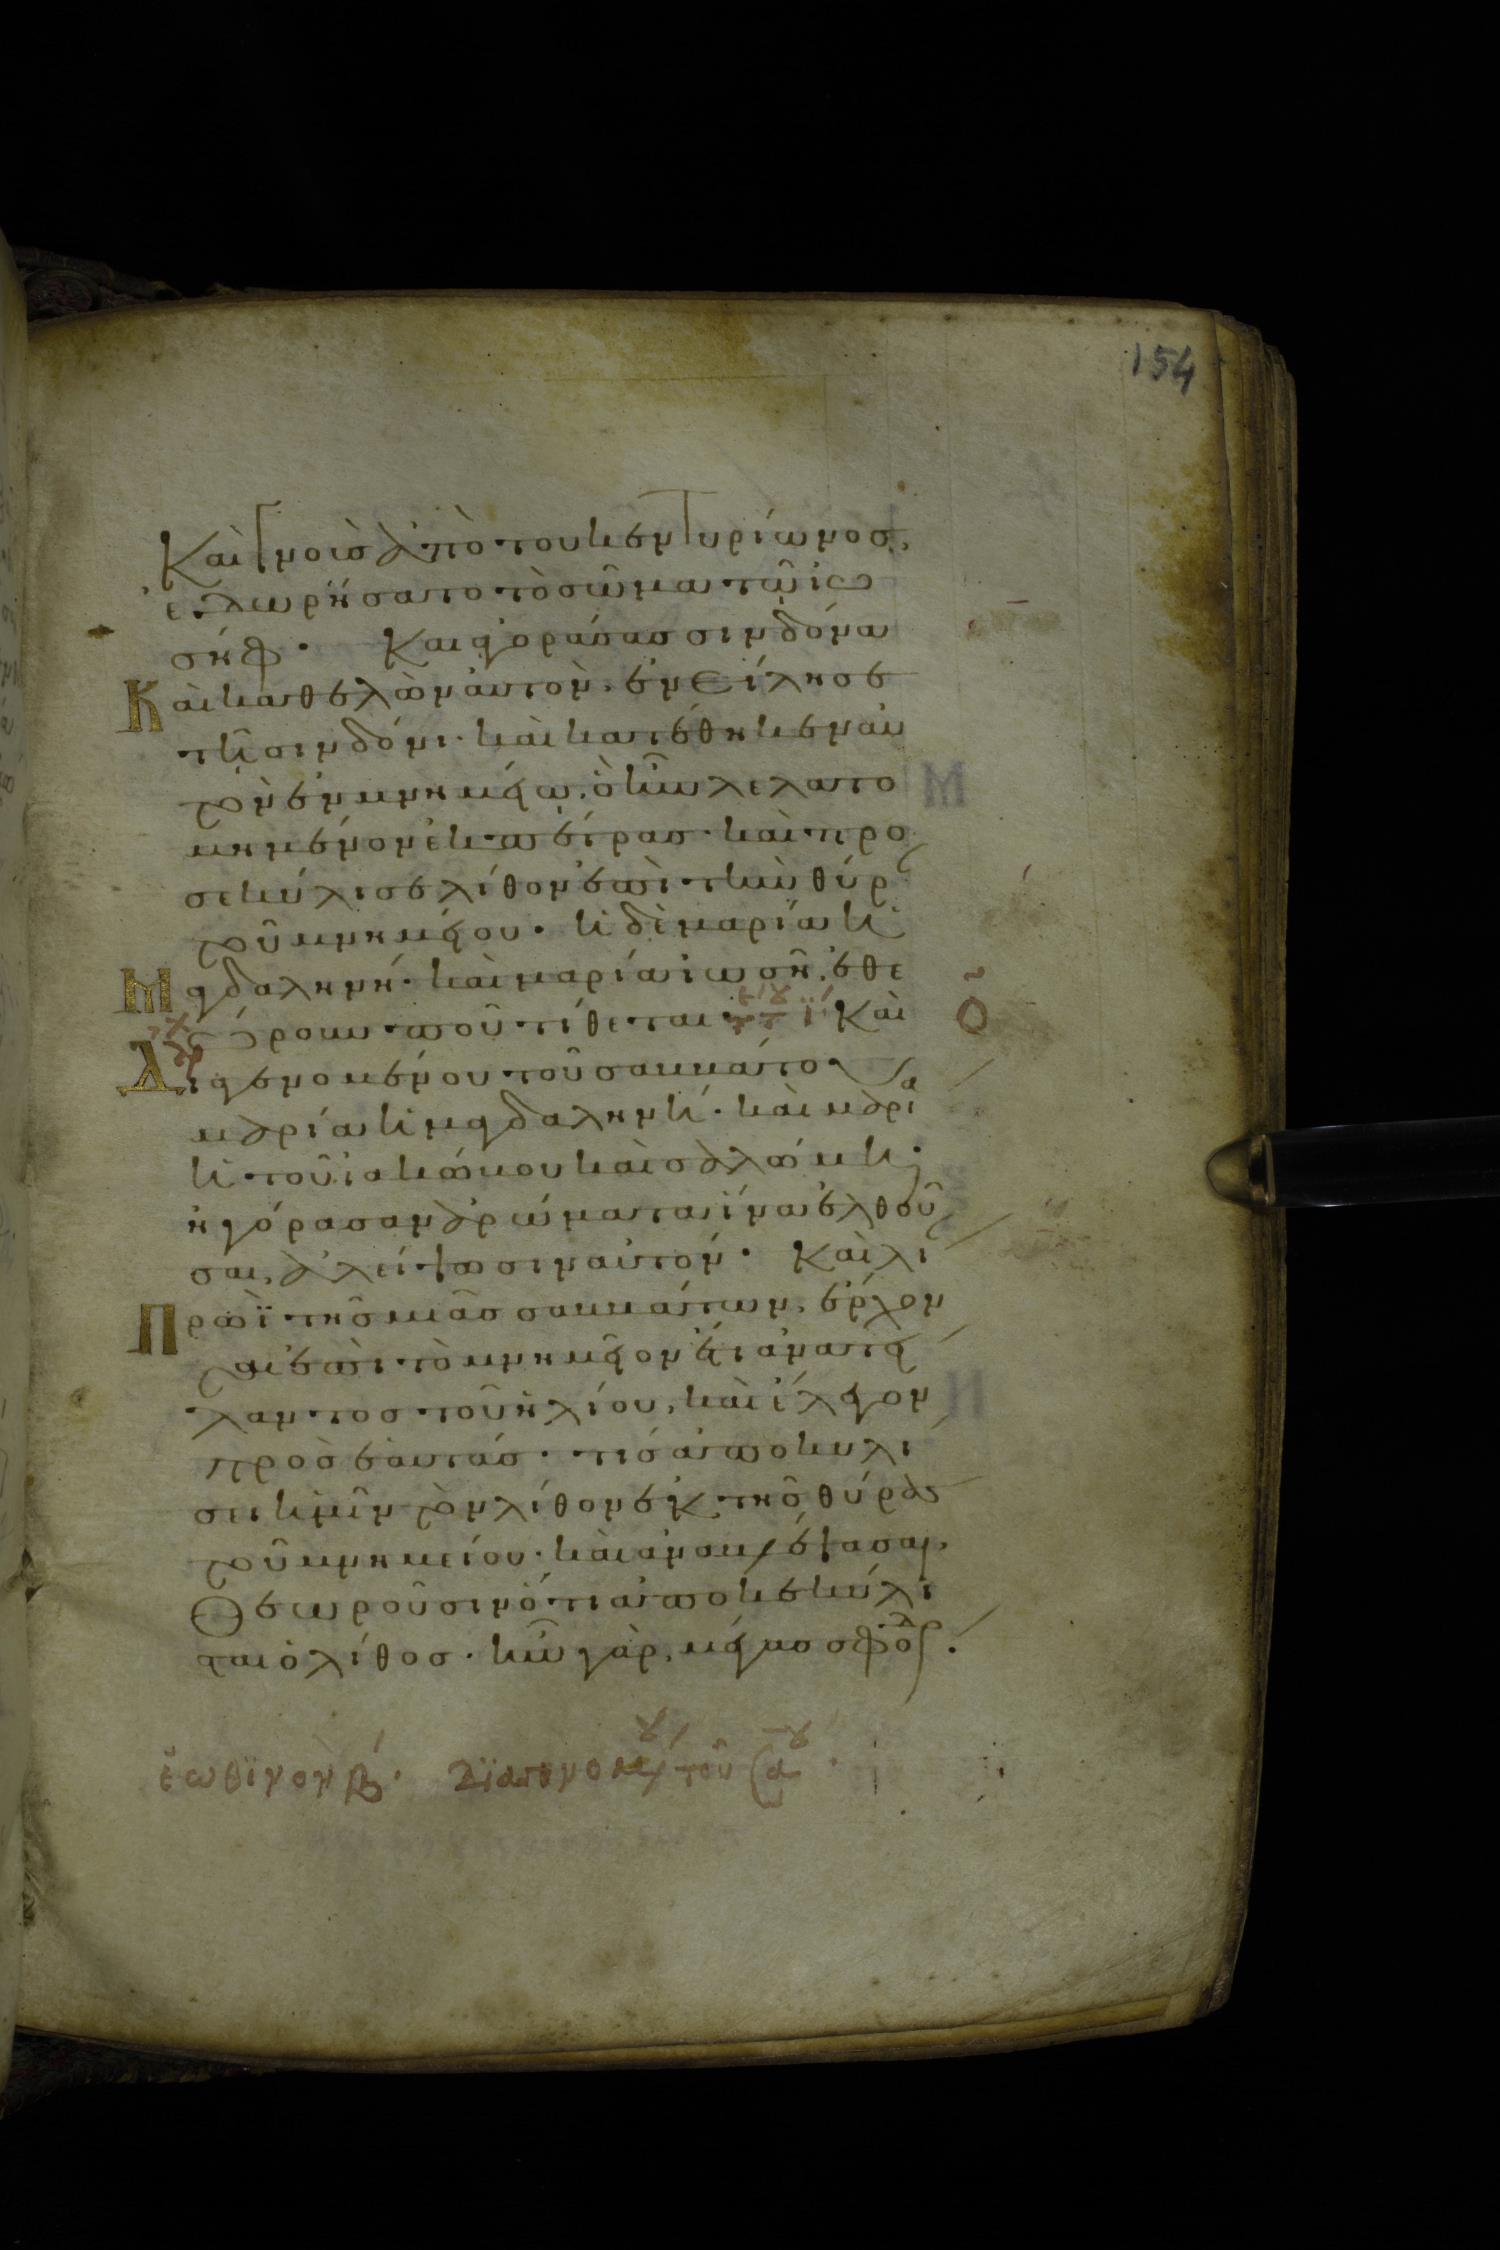 154
Καὶ γνοὺς ἀπὸ τοῦ κεντυρίωνος,
ἐχωρήσατο τὸ σῶμα τῶ ἰω
σήφ· Καὶ ἀγοράσας σινδόνα
Καὶ καθελὼν αυτὸν, ἐνείλησε
τῆ σινδόνι· καὶ κατέθηκεν αὐ
τὸν ἐν μνημείω, ὃ ἦν λελατο
μημένον ἐκ πέτρας· καὶ προ
σεκύλισε λίθον ἐπὶ τὴν θύρ
τοῦ μνημείου· ἡ δὲ μαρία ἡ
Μαγδαληνή· καὶ μαρία ἰωσῆ, ἐθε
ώρουν ποῦ τίθεται Καὶ
Διαγενομένου τοῦ σαββάτου
μαρία ἡ μαγδαληνή· καὶ μαρία
ἡ τοῦ ἰακώβου καὶ σαλώμη·
ηγόρασαν ἀρώματα ἵνα ἐλθοῦ
σαι, ἀλείψωσιν αὐτόν· Καὶ λί
Πρωῒ τῆς μιᾶς σαββάτων, ἔρχον
ται ἐπὶ τὸ μνημεῖον ἔτι ἀνατεί
λαντος τοῦ ἡλίου, καὶ ἔλεγον
πρὸς ἑαυτάς· τίς ἀποκυλί
σει ἡμῖν τὸν λίθον ἐκ τῆς θύρας
τοῦ μνημείου· καὶ ἀναβλέψασαι,
Θεωροῦσιν ὅτι ἀποκεκύλι
σται ὁ λίθος· ἦν γὰρ, μέγας σφόδρ·
ἑωθϊνὸν Β·